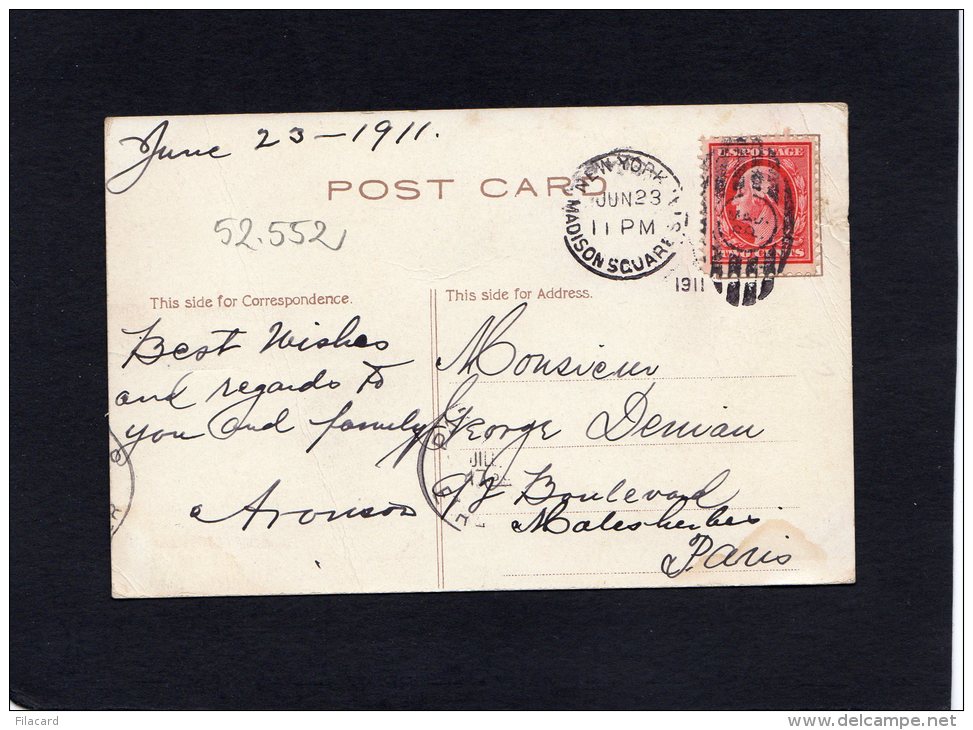 June 23 - 1911.
POST CARD
52.552
NEW YORK
MADISON SQUARE ST
JUN 23
11 PM
1911
U.S. POSTAGE
CENTS
This side for Correspondence.
This side for Address.
Best Wishes
and regards to
you and family
Aronson
Monsieur
George Demiau
Boulevard
Malesherbes
Paris
Filacard
www.delcampe.net